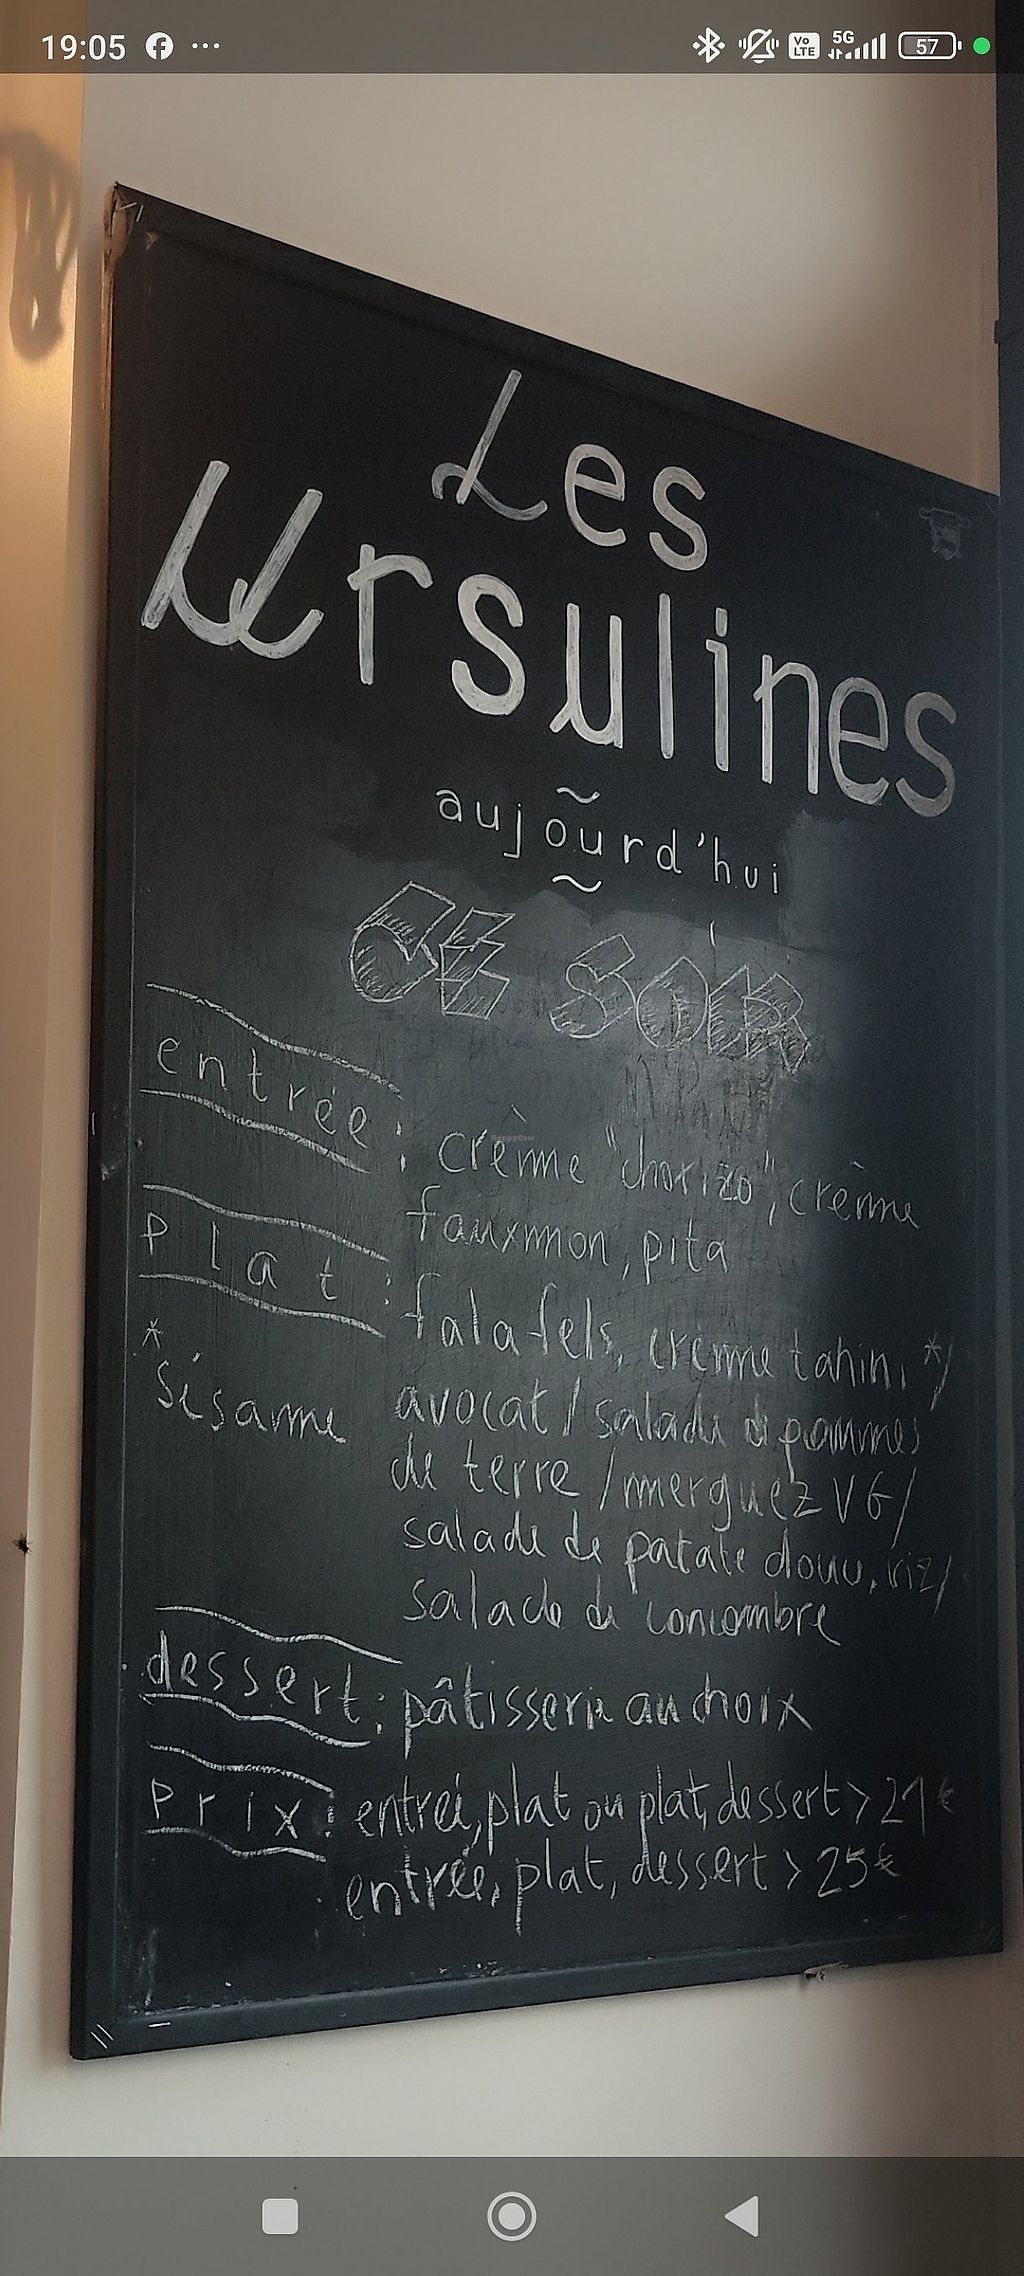 19:05
Vo LTE 5G 57
Les
Ursulines
aujourd'hui
CE SOIR
entrée : crème "chorizo", crème
fauxmon, pita
plat : falafels, crème tahin, */
* sésame avocat / salade de pommes
de terre / merguez VG /
salade de patate douce, riz /
salade de concombre
dessert : pâtisserie au choix
prix : entrée, plat ou plat, dessert > 21€
entrée, plat, dessert > 25€
HappyCow